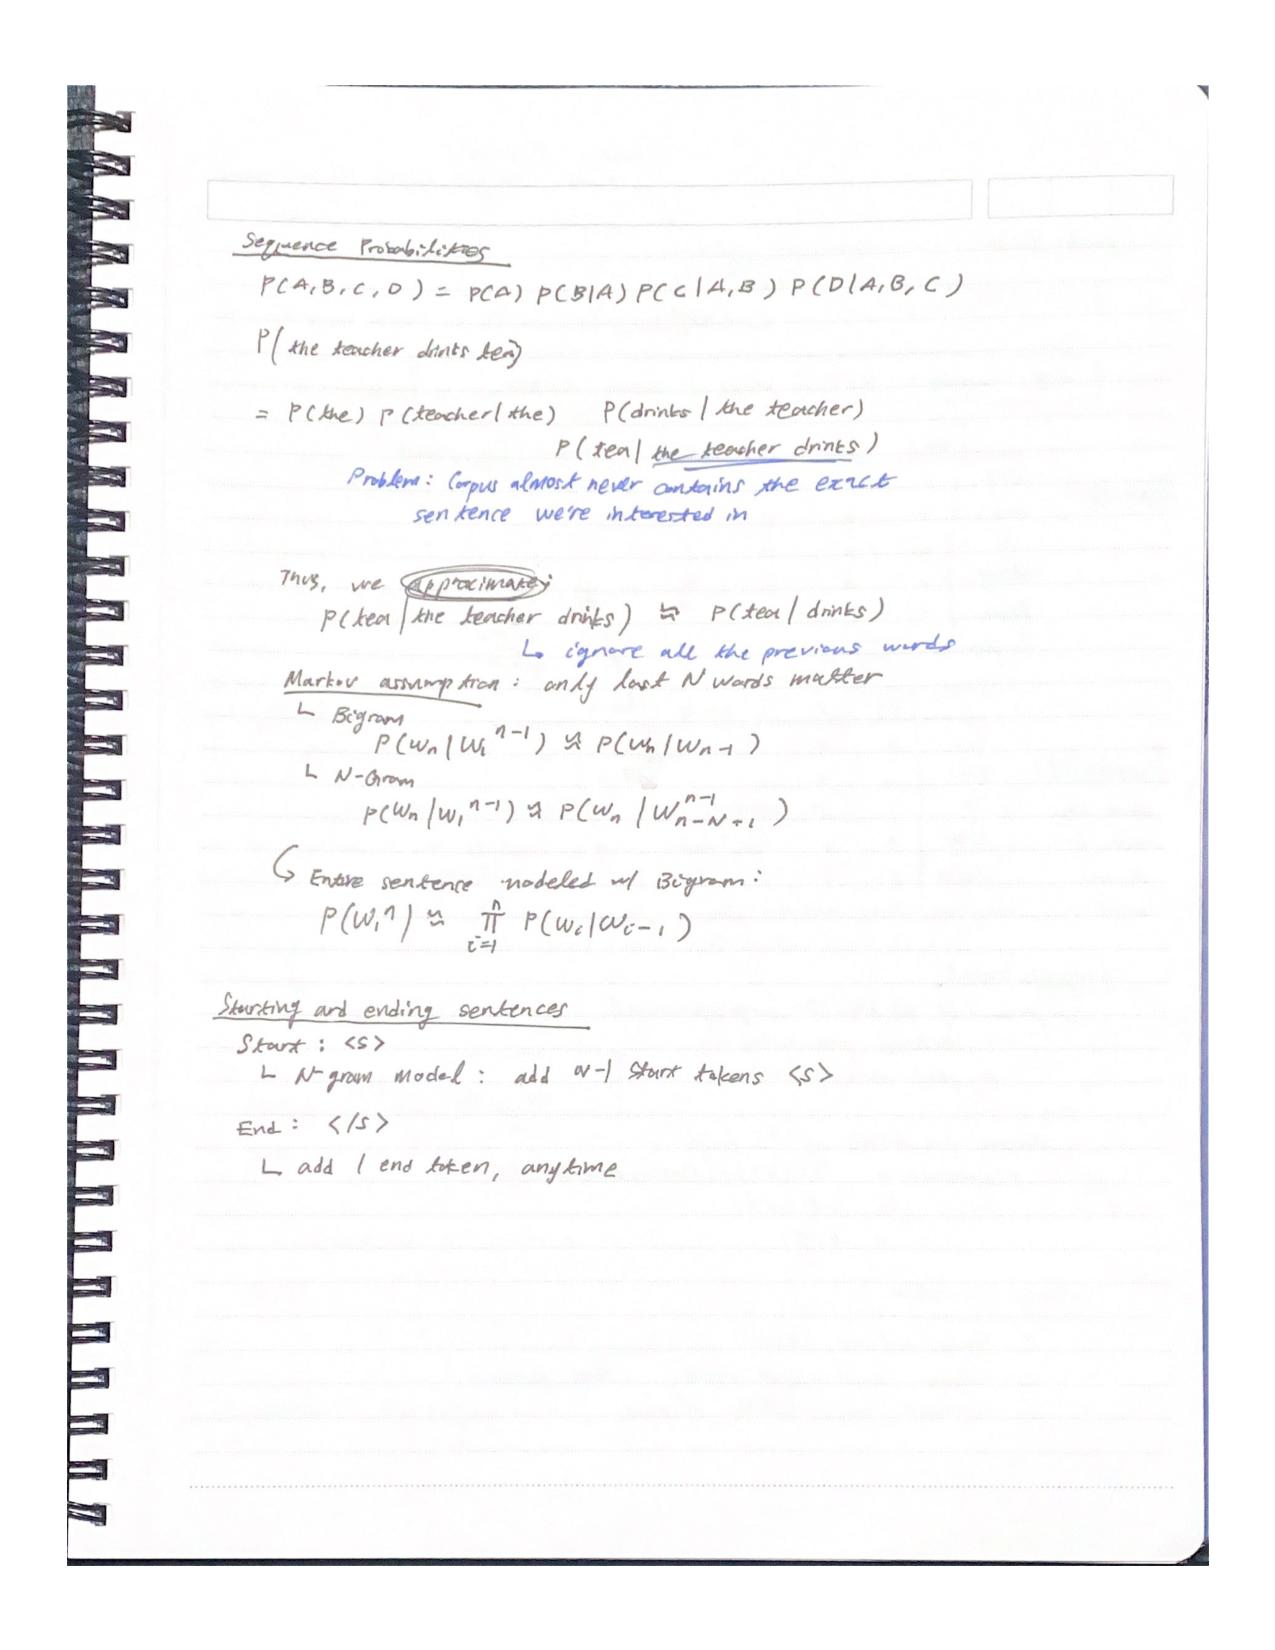 Sequence Probabilities
P(A,B,C,D) = P(A) P(B|A) P(C|A,B) P(D|A,B,C)
P(the teacher drinks tea)
= P(the) P(teacher|the) P(drinks|the teacher)
P(tea|the teacher drinks)
Problem: Corpus almost never contains the exact
sentence we're interested in
Thus, we approximate:
P(tea|the teacher drinks) ≈ P(tea|drinks)
↳ ignore all the previous words
Markov assumption: only last N words matter
↳ Bigram
P(wₙ|w₁ⁿ⁻¹) ≈ P(wₙ|wₙ₋₁)
↳ N-Gram
P(wₙ|w₁ⁿ⁻¹) ≈ P(wₙ|w_{n-N+1}^{n-1})
↳ Entire sentence modeled w/ Bigram:
P(w₁ⁿ) ≈ ∏_{i=1}^{n} P(wᵢ|wᵢ₋₁)
Starting and ending sentences
Start: <s>
↳ N-gram model: add N-1 start tokens <s>
End: </s>
↳ add 1 end token, anytime